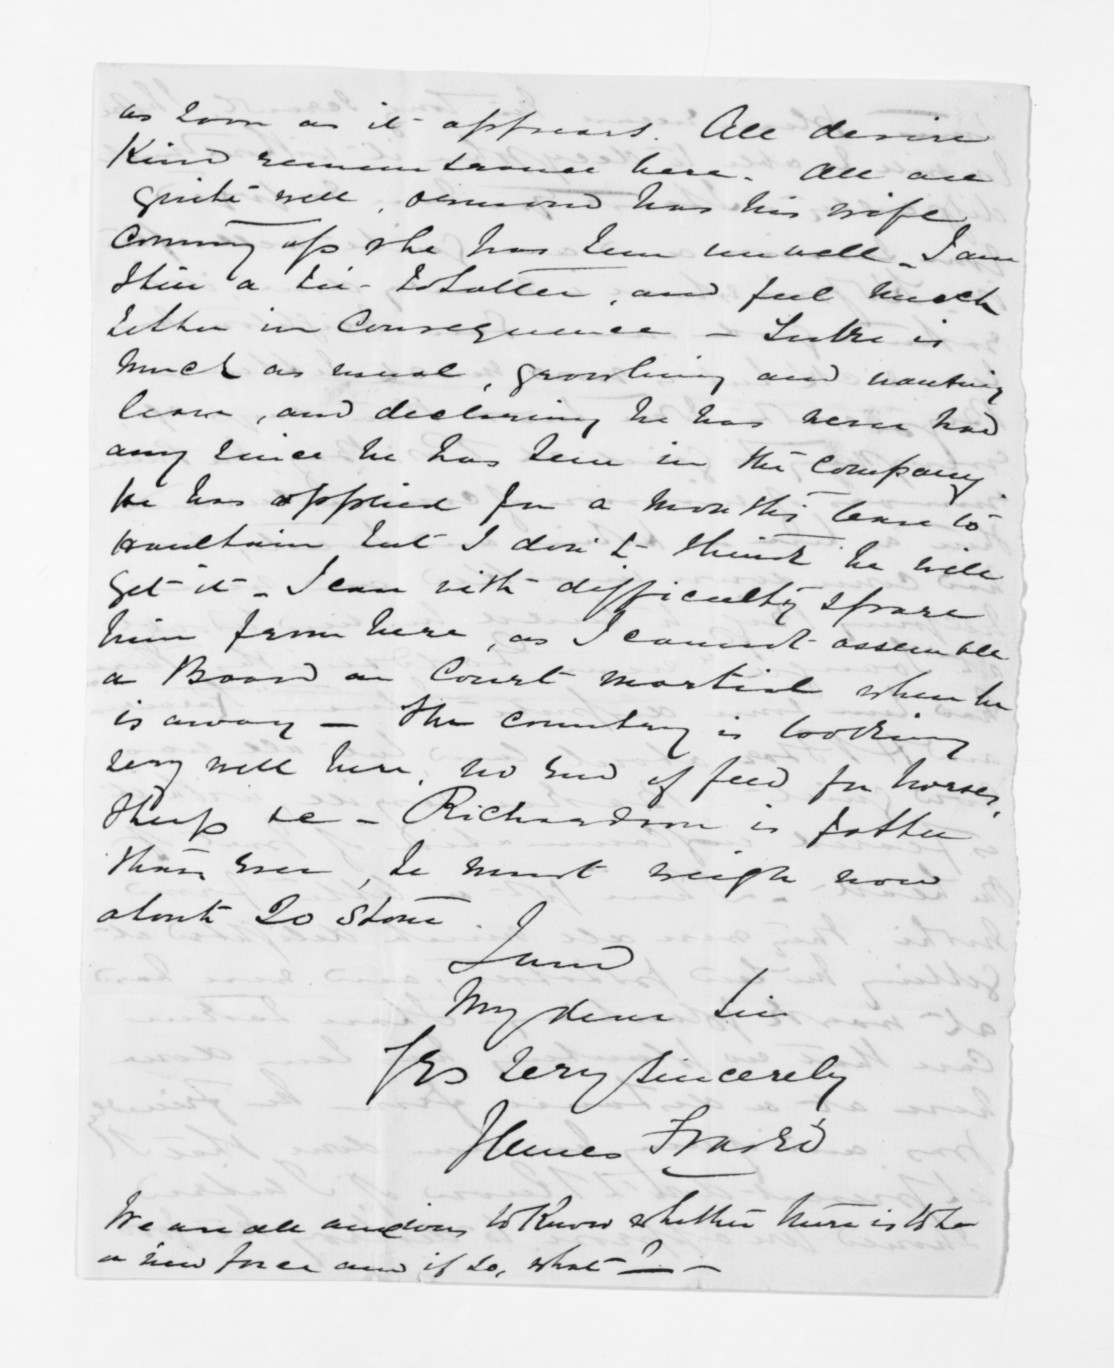 as soon as it appears. All desire
Kind remembrance here. All are
quite well, Ormond has his wife
Coming up she has been unwell - I am
Still a tee-totaller, and feel much
better in Consequence - is
much as usual, growling and wanting
leave, and declaring he has never had
any since he has been in the Company.
He has applied for a months leave to
but I don't think he will
get it - I can with difficulty spare
him from here, as I cannot assemble
a Board or Court martial when he
is away - The country is looking
very well here, no end of feed for horses,
Sheep &c - Richardson is fatter
than ever, he must weigh now
about 20 Stone.
I am
My dear Sir
Yrs very sincerely
James Fraser
We are all anxious to Know whether there is to be
a new force and if so, what? -